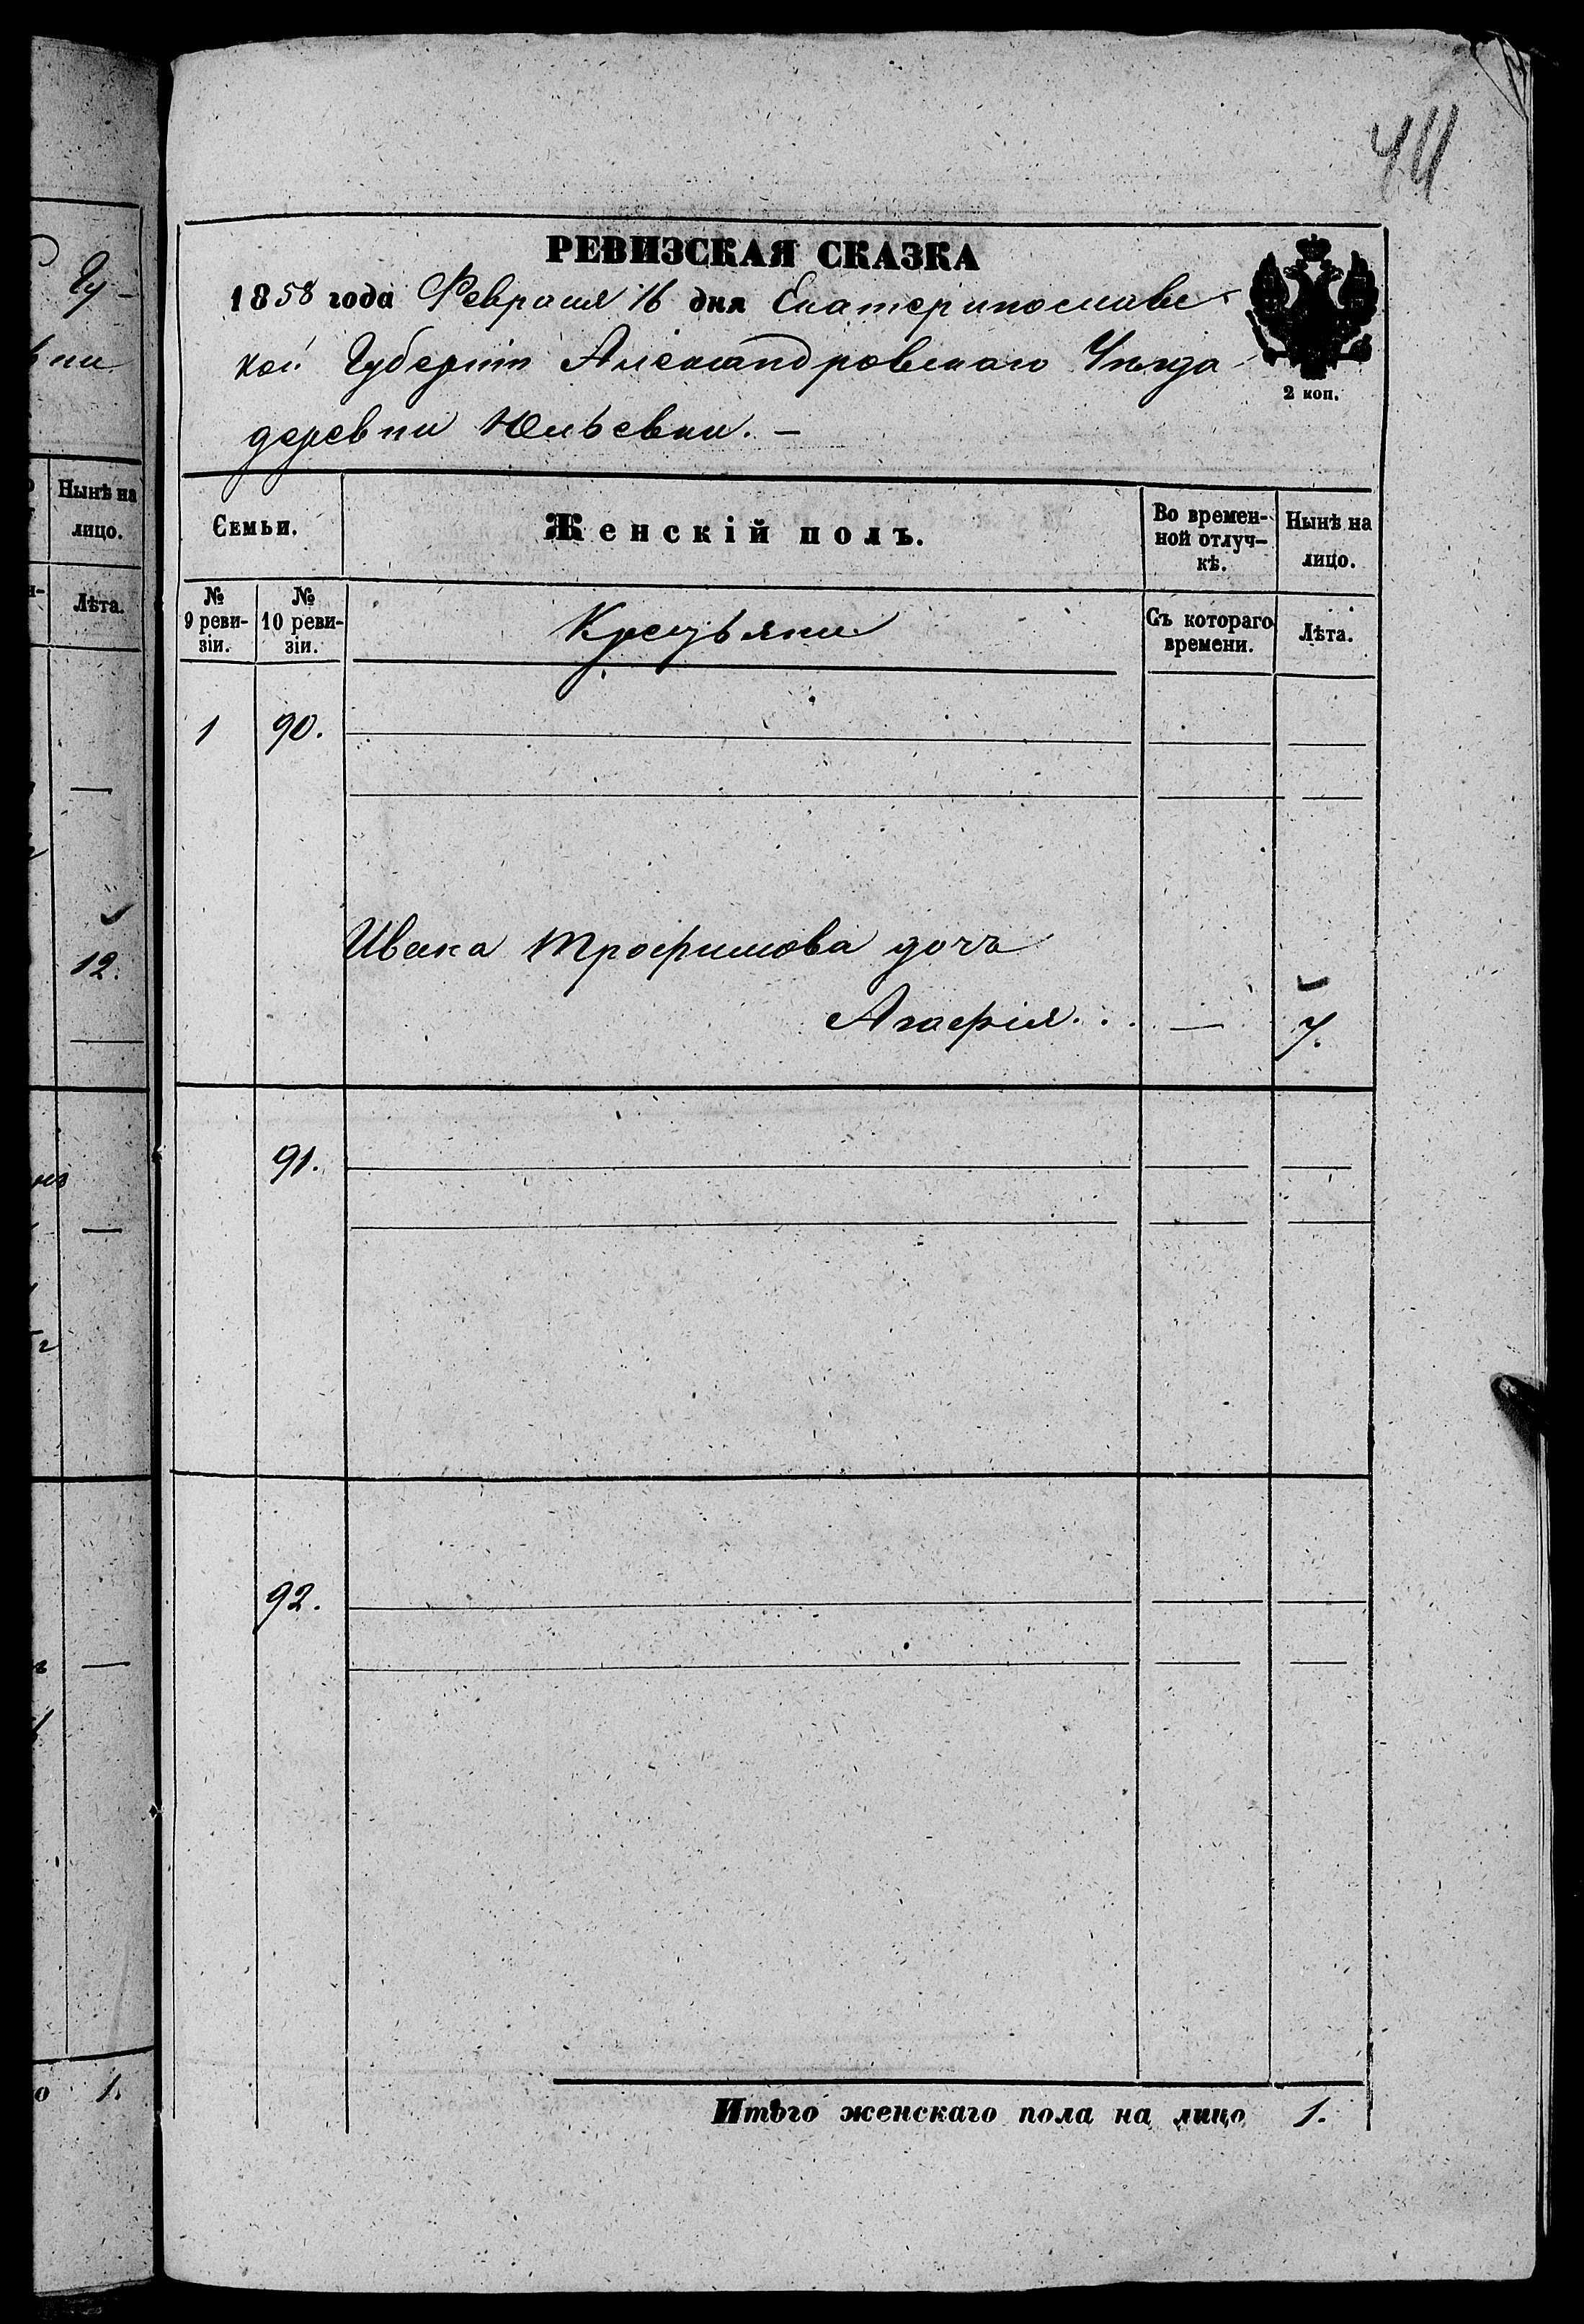 44
РЕВИЗСКАЯ СКАЗКА
1858 года Февраля 16 дня Екатеринославс-
кой Губерніи Александровскаго Уѣзда
2 коп.
деревни Юльевки. —
Семьи.
Женскій полъ.
Во времен-
ной отлуч-
кѣ.
Нынѣ на
лицо.
№
9 реви-
зіи.
№
10 реви-
зіи.
Крестьяне
Съ котораго
времени.
Лѣта.
1 90.
Ивана Трофимова дочь
Агафія . . . — 7.
91.
92.
Итого женскаго пола на лицо 1.
Гу-
вни
Нынѣ на
лицо.
Лѣта.
12.
1.